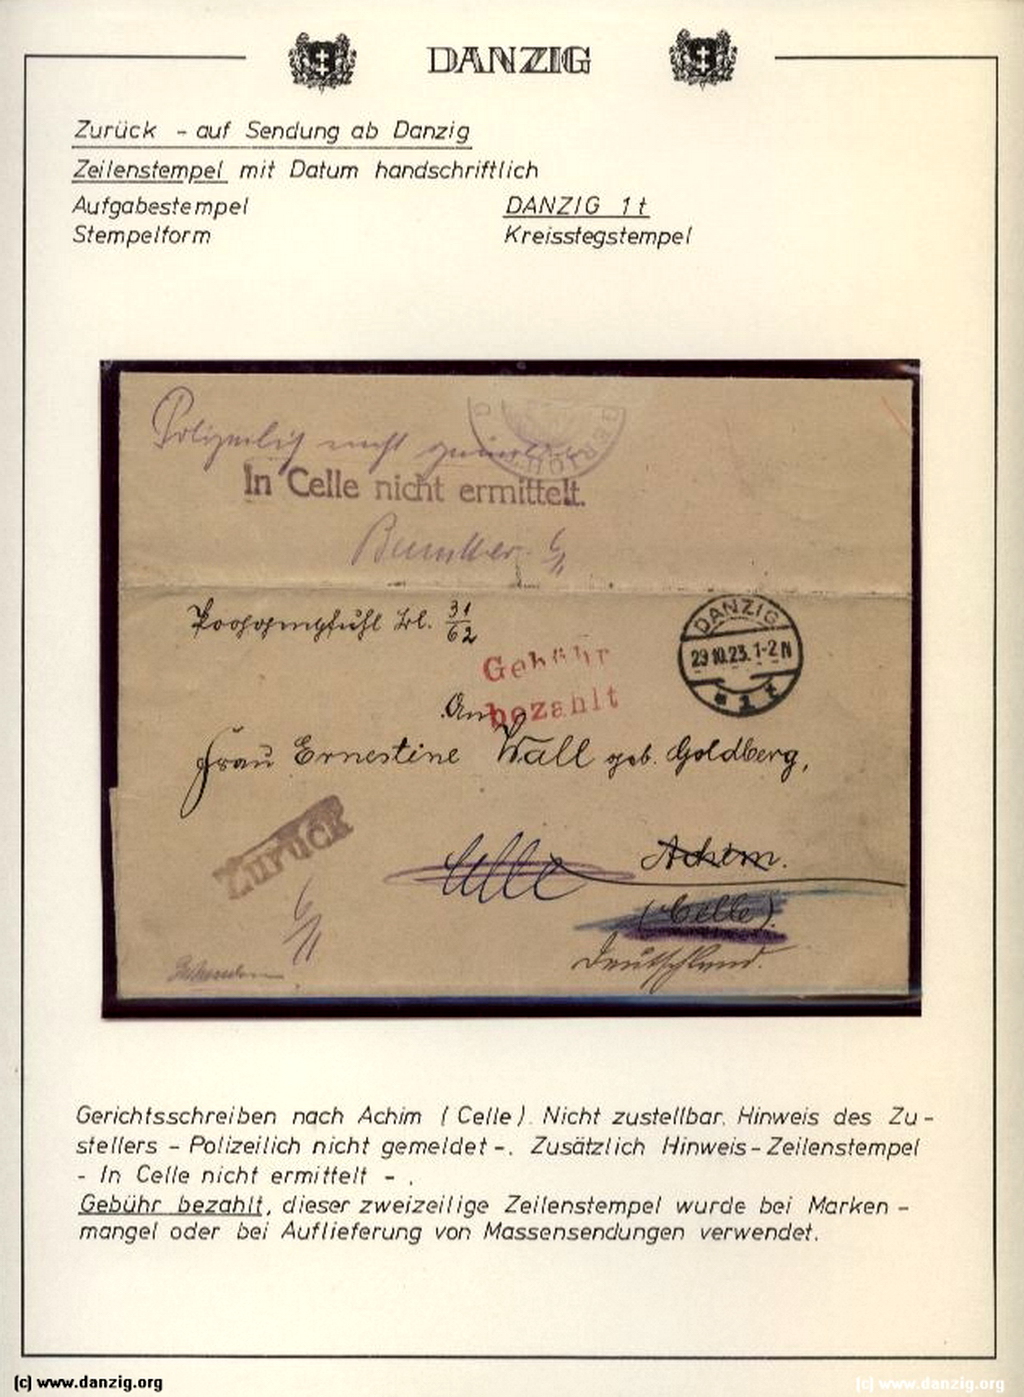 DANZIG
Zurück - auf Sendung ab Danzig
Zeilenstempel mit Datum handschriftlich
Aufgabestempel DANZIG 1 t
Stempelform Kreisstegstempel
Polizeilich nicht
In Celle nicht ermittelt.
31
62
DANZIG
29.10.23.1-2N
* 1 t
Gebühr
bezahlt
An
Frau Ernestine Wall geb. Goldberg,
Zurück
Celle Achim.
(Celle).
Deutschland.
Gerichtsschreiben nach Achim (Celle). Nicht zustellbar. Hinweis des Zu-
stellers - Polizeilich nicht gemeldet -. Zusätzlich Hinweis-Zeilenstempel
- In Celle nicht ermittelt - .
Gebühr bezahlt, dieser zweizeilige Zeilenstempel wurde bei Marken-
mangel oder bei Auflieferung von Massensendungen verwendet.
(c) www.danzig.org (c) www.danzig.org